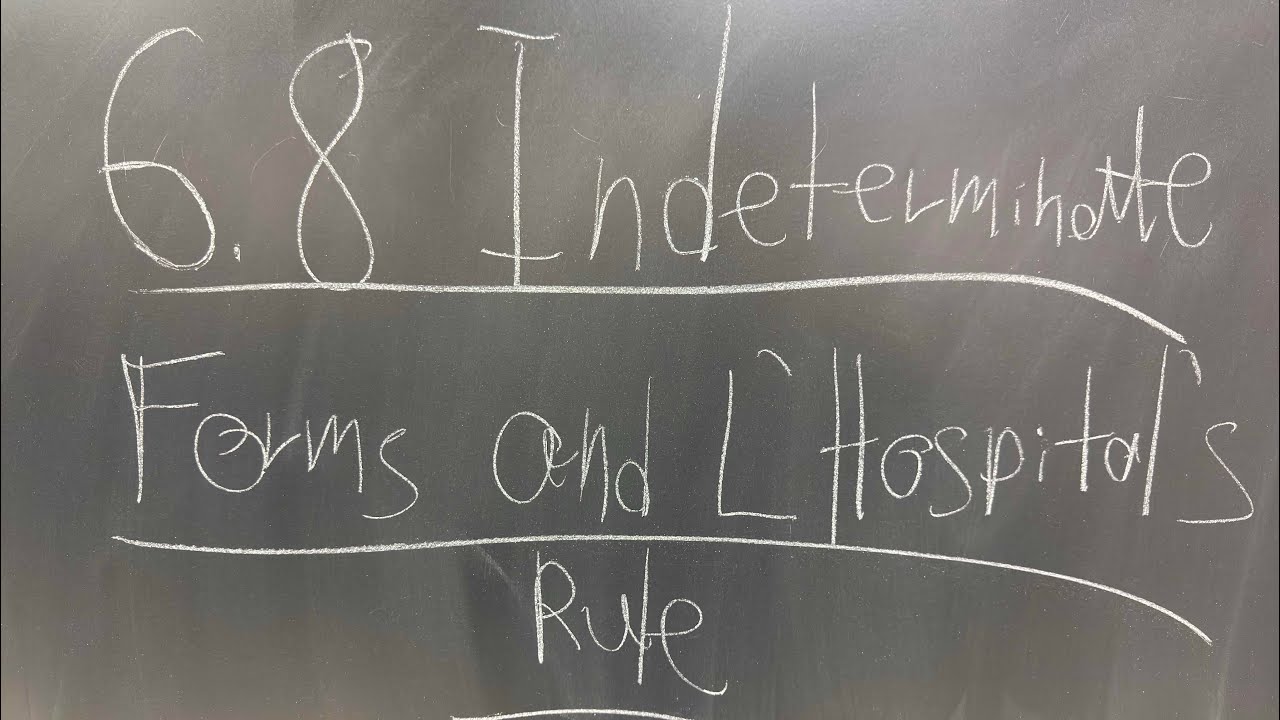 6.8 Indeterminate
Forms and L'Hospital's
Rule